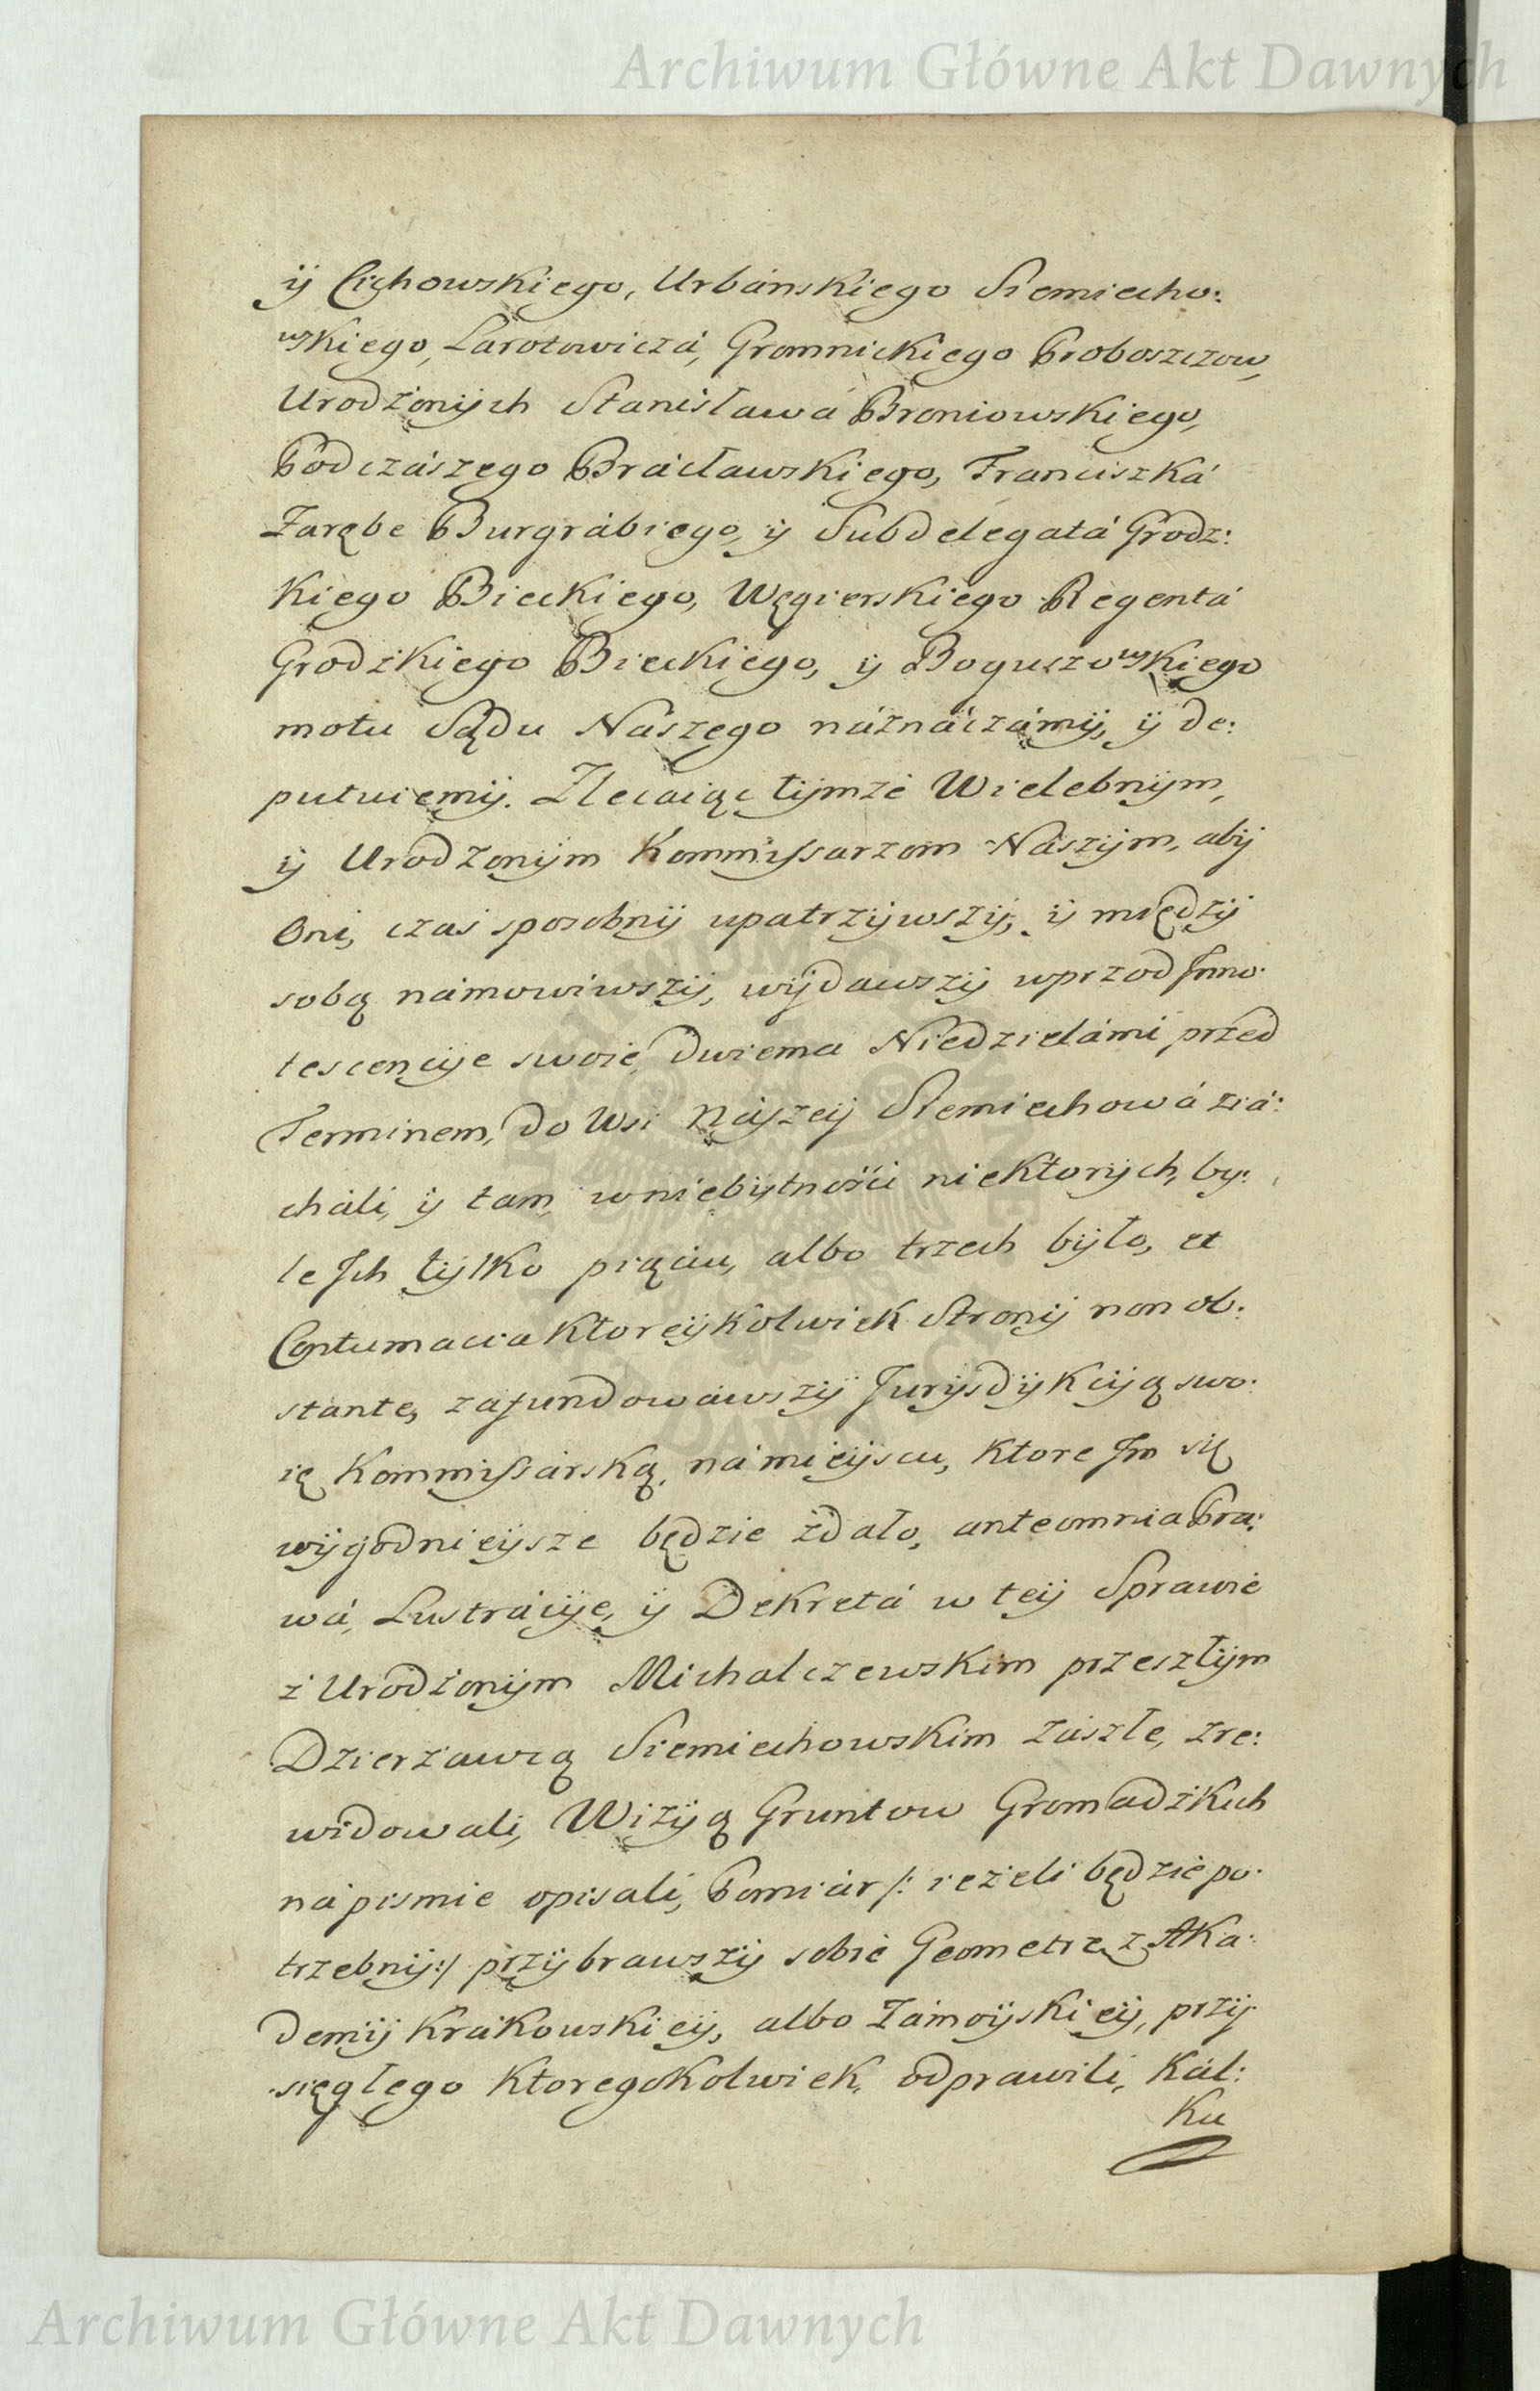 Archiwum Główne Akt Dawnych
ÿ Cichowskiego, Urbánskiego Siemiecho:
wskiego, Larotowiczá, Gromnickiego Proboszczow,
Urodzonÿch Stanisława Broniowskiego,
Podczászego Brácławskiego, Franciszká
Zarębe Burgrábiego, ÿ Subdelegatá Grodz:
kiego Bieckiego, Węgierskiego Regentá
Grodzkiego Bieckiego, ÿ Boguszowskiego
motu Sądu Nászego náznáczámÿ, ÿ de:
putuiemÿ. Zlecaiąc tÿmze Wielebnÿm,
ÿ Urodzonÿm Kommissarzom Nászÿm, abÿ
Oni, czas sposobnÿ upatrzÿwszÿ, ÿ międzÿ
sobą námowiwszÿ, wÿdawszÿ wprzod Inno:
tescencÿe swoie dwiema Niedzielámi przed
Terminem, do Wsi Nászeÿ Siemiechowá ziá:
cháli, ÿ tam, w niebÿtnośći niektorÿch, by:
le Ich tÿlko pięciu, albo trzech bÿło, et
Contumacia ktoreÿkolwiek Stronÿ non ob:
stante, zafundowáwszÿ Jurÿsdÿkcÿą swo:
ię Kommissárską, ná mieÿscu, ktore Im się
wÿgodnieÿsze będzie zdało, ante omnia Pra:
wá, Lustrácÿe, ÿ Dekretá w teÿ Sprawie
z Urodzonÿm Michalczewskim przeszłÿm
Dzierzawcą Siemiechowskim zászłe, zre:
widowali, Wizÿą Gruntow Gromadzkich
ná pismie opisali, Pomiár /: iezeli będzie po:
trzebnÿ:/ przÿbrawszÿ sobie Geometrę z Aka:
demÿ Krákowskieÿ, albo Zámoÿskieÿ, przÿ:
sięgłego ktoregokolwiek, odprawili, Kál:
ku
Archiwum Główne Akt Dawnych